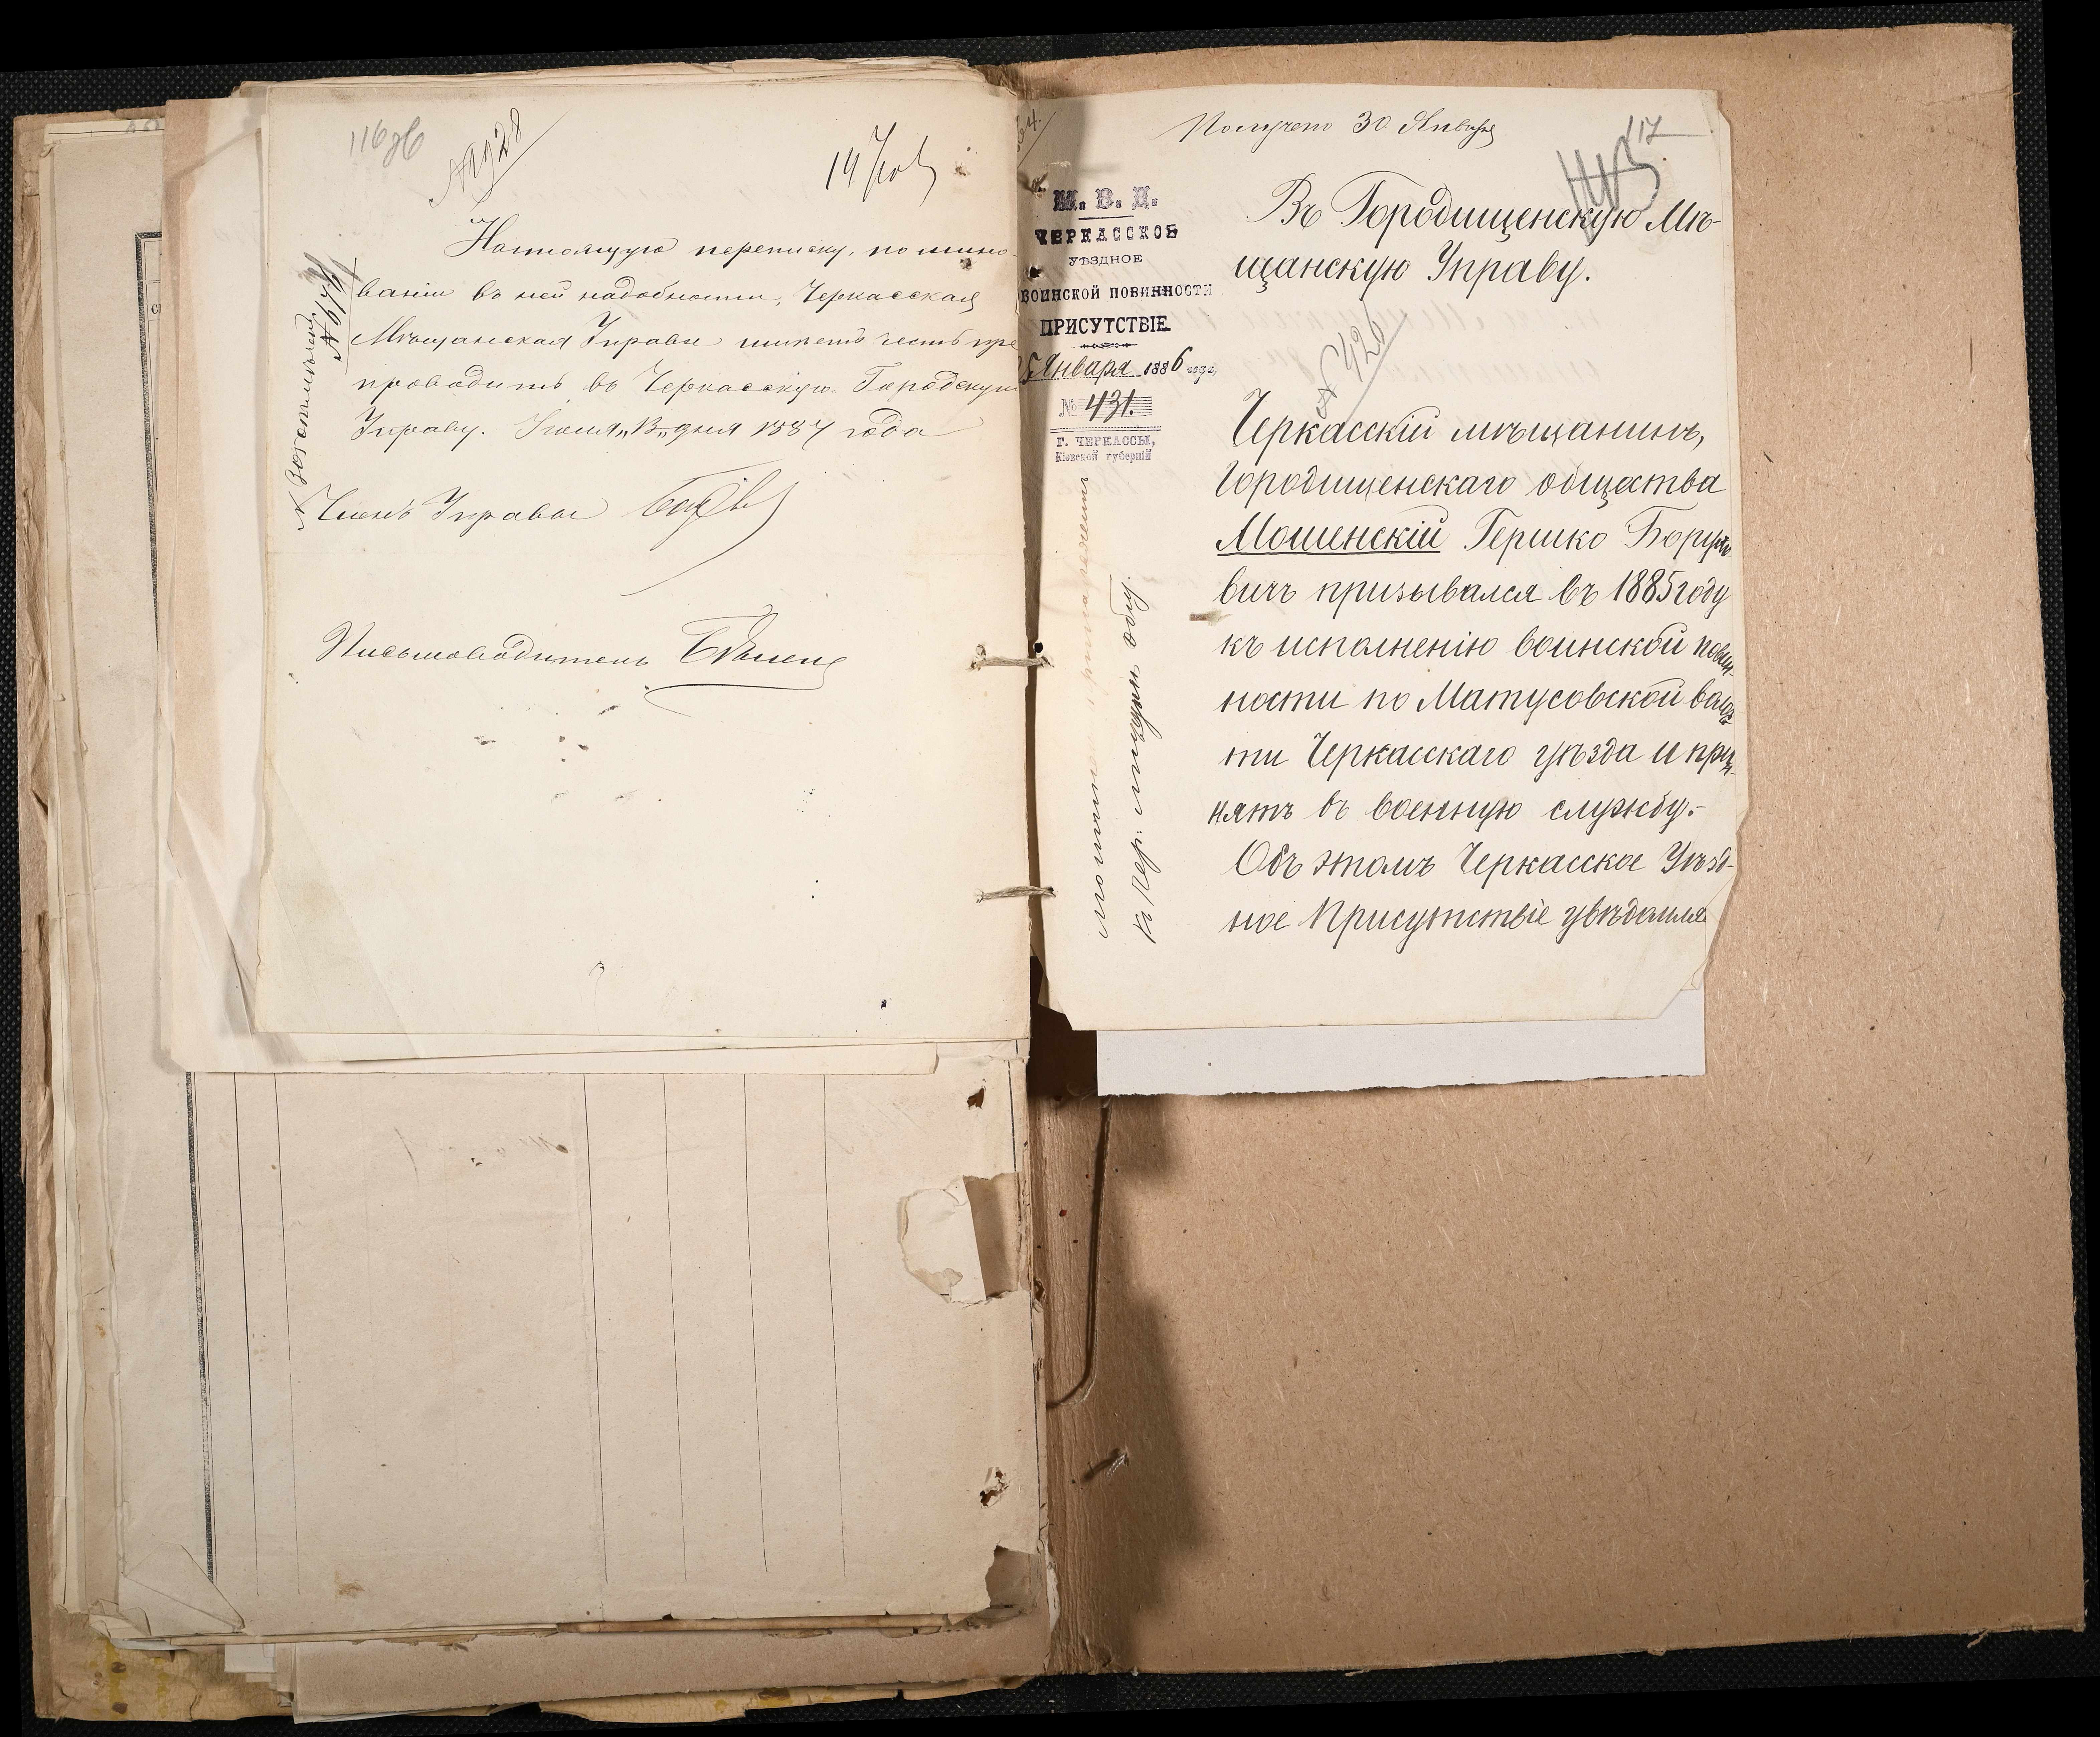 116об
14 Іюл
Настоящую переписку, по мино-
ваніи въ ней надобности, Черкасская
Мѣщанская Управа имѣетъ честь пре
проводить въ Черкасскую Городскую
Управу. Іюля „13„ дня 1887 года
Членъ Управы
Письмоводитель
Получено 30 Января
117
М. В. Д.
ЧЕРКАССКОЕ
УѢЗДНОЕ
ВОИНСКОЙ ПОВИННОСТИ
ПРИСУТСТВІЕ
25 Января 1886 года
№ 431.
Г. ЧЕРКАССЫ,
Кіевской губерніи
Въ Городищенскую Мѣ-
щанскую Управу.
№ 426
Черкасскій мѣщанинъ,
Городищенскаго общества
Мошенскій Гершко Борухо-
вичъ призывался въ 1885 году
къ исполненію воинской повин-
ности по Матусовской волос-
ти Черкасскаго уѣзда и при-
нятъ въ военную службу.-
Объ этомъ Черкасское Уѣзд-
ное Присутствіе увѣдомляе